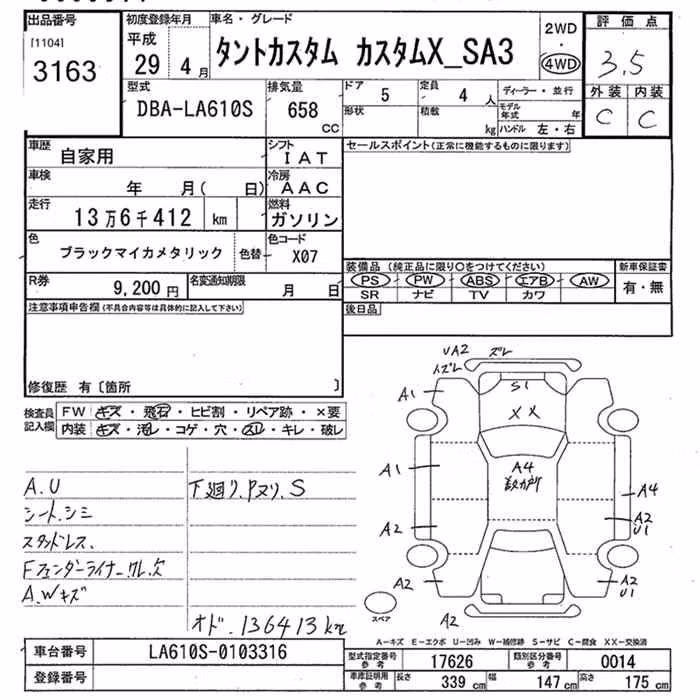 出品番号
[1104]
3163
初度登録年月
平成
29 4月
車名・グレード
タントカスタム カスタムX_SA3
2WD
・
4WD
評価点
3.5
外装 内装
C C
型式
DBA-LA610S
排気量
658
CC
ドア 5
形状
定員 4 人
積載 kg
ディーラー・並行
モデル年式 年
ハンドル 左・右
車歴
自家用
シフト
IAT
車検
年 月( 日)
冷房
AAC
走行
13万6千412 km
燃料
ガソリン
色
ブラックマイカメタリック
色替
色コード
X07
R券
9,200円
名変通知期限
月 日
セールスポイント(正常に機能するものに限ります)
装備品 (純正品に限り○をつけてください)
新車保証書
PS PW ABS エアB AW
有・無
SR ナビ TV カワ
後日品
注意事項申告欄(不具合内容等は具体的に記入して下さい)
修復歴 有〔箇所 〕
検査員
記入欄
FW キズ・飛石・ヒビ割・リペア跡・×要
内装 キズ・汚レ・コゲ・穴・スレ・キレ・破レ
A.U
シート.シミ
スタッドレス.
Fフェンダーライナー.クレ.欠
A.Wキズ
下廻り.Pヌリ.S
オド.136413km
UA2 ズレ
ズレ
A1
S1
XX
A1
A4
A4
A2
A2
U1
A2
A2
U1
A2
スペア
A-キズ E-エクボ U-凹み W-補修跡 S-サビ C-腐食 XX-交換済
車台番号
LA610S-0103316
登録番号
型式指定番号
参考
17626
類別区分番号
参考
0014
車庫証明用
参考
長さ 339 cm
幅 147 cm
高さ 175 cm